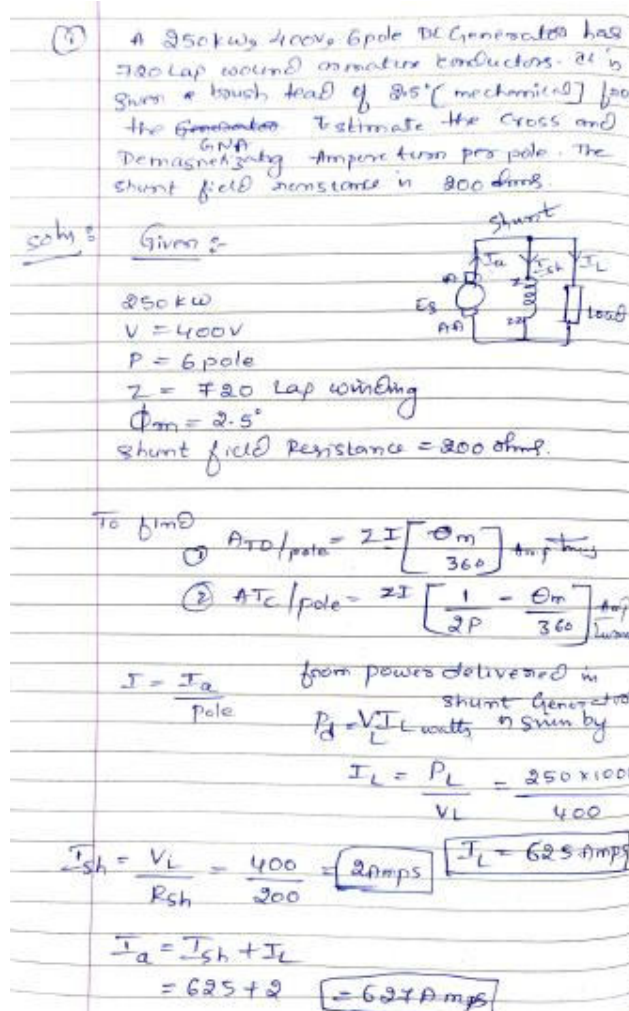 ① A 250kw, 400v, 6pole DC Generator has
720 Lap wound armature conductors. It is
given a brush lead of 2.5° [mechanical] from
the Generator Estimate the Cross and
GNA
Demagnetizing Ampere turn per pole. The
shunt field resistance is 200 ohms.
Shunt
soln :
Given :-
Ia
Ish
IL
A
Z
Eg
AA
ZZ
Load
250 kw
V = 400V
P = 6 pole
Z = 720 Lap winding
Φm = 2.5°
Shunt field Resistance = 200 ohms.
To find
① ATD/pole = ZI [θm/360] Amp Turns
② ATC/pole = ZI [1/2P - θm/360] Amp Turns
I = Ia/Pole
from power delivered in
shunt Generator
Pd = VL IL watts is given by
IL = PL/VL = 250 x 100/400
Ish = VL/Rsh = 400/200 = 2Amps
IL = 625 Amps
Ia = Ish + IL
= 625 + 2 = 627 Amps